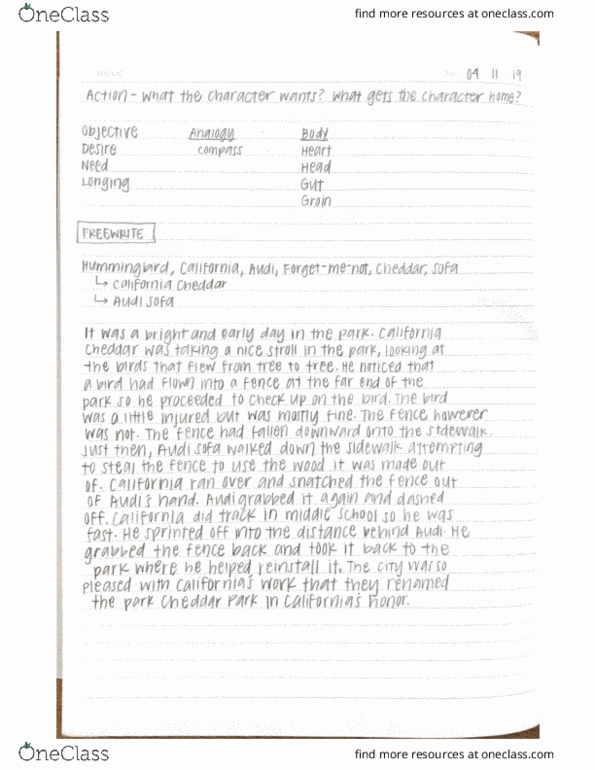 OneClass
find more resources at oneclass.com
04 11 19
Action - What the character wants? What gets the character home?
Objective Analogy Body
Desire compass Heart
Need Head
Longing Gut
Groin
FREEWRITE
Hummingbird, California, Audi, Forget-me-not, Cheddar, Sofa
↳ California Cheddar
↳ Audi Sofa
It was a bright and early day in the park. California
Cheddar was taking a nice stroll in the park, looking at
the birds that flew from tree to tree. He noticed that
a bird had flown into a fence at the far end of the
park so he proceeded to check up on the bird. The bird
was a little injured but was mostly fine. The fence however
was not. The fence had fallen downward onto the sidewalk.
Just then, Audi Sofa walked down the sidewalk attempting
to steal the fence to use the wood it was made out
of. California ran over and snatched the fence out
of Audi's hand. Audi grabbed it again and dashed
off. California did track in middle school so he was
fast. He sprinted off into the distance behind Audi. He
grabbed the fence back and took it back to the
park where he helped reinstall it. The city was so
pleased with California's work that they renamed
the park Cheddar Park in California's honor.
OneClass
find more resources at oneclass.com